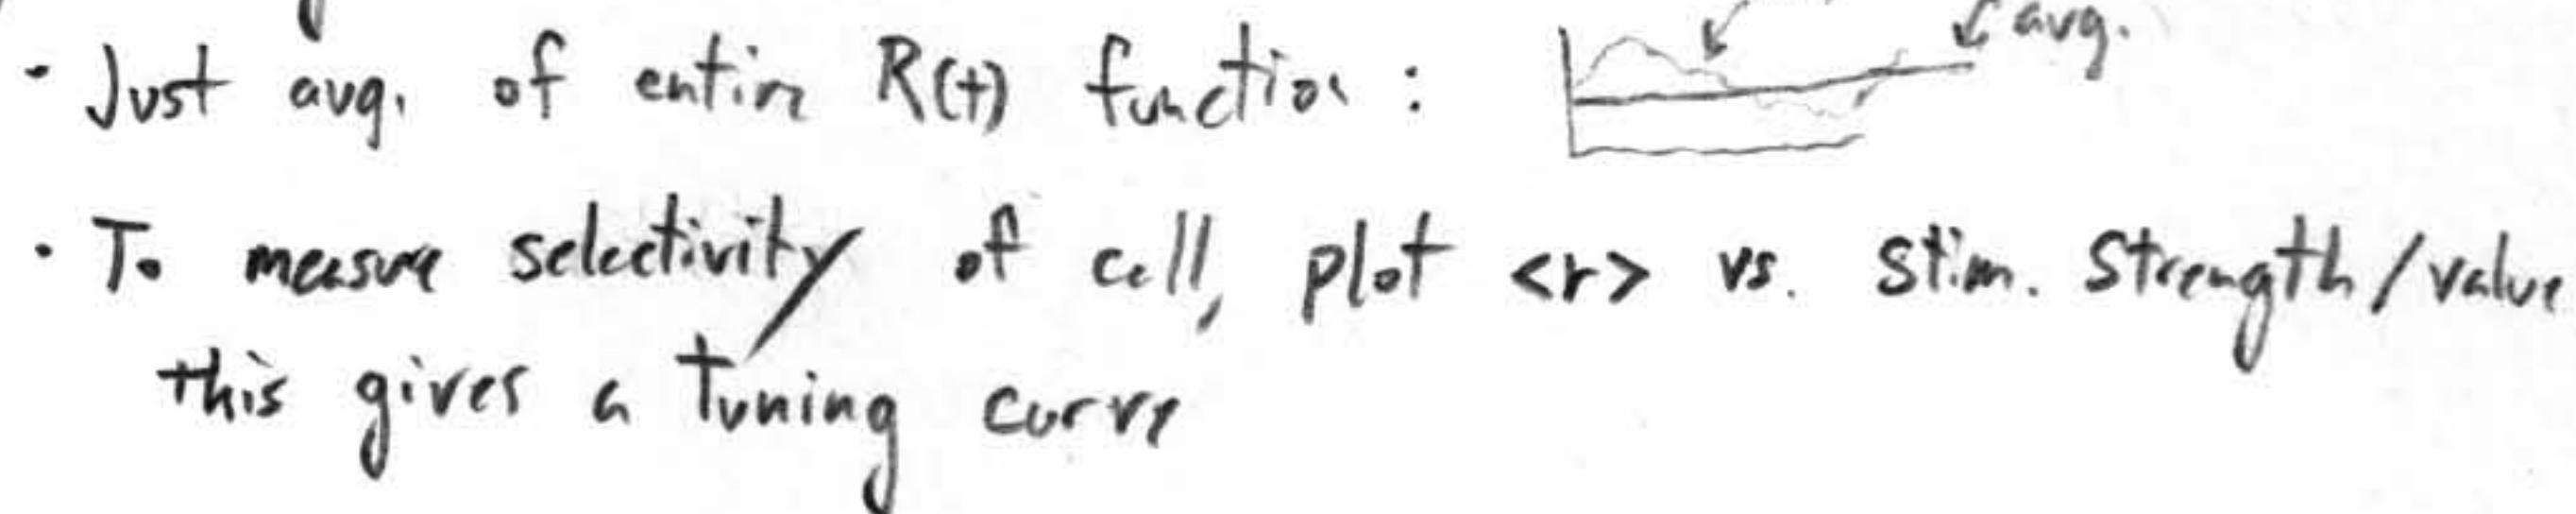 · Just avg. of entire R(t) function :
avg.
· To measure selectivity of cell, plot <r> vs. stim. strength/value
this gives a tuning curve